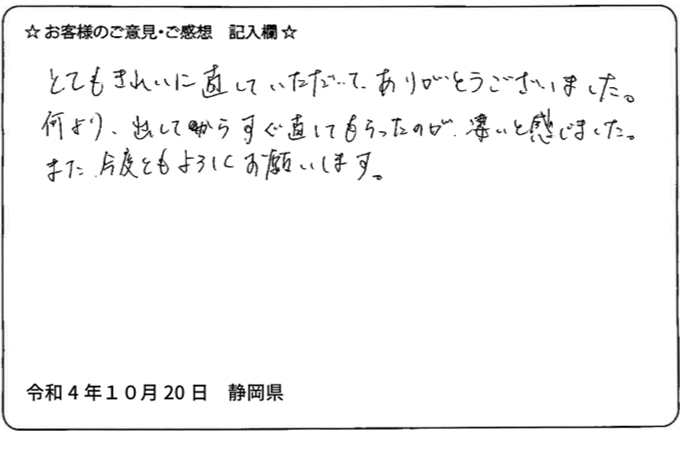 ☆お客様のご意見・ご感想 記入欄☆
とてもきれいに直していただいて、ありがとうございました。
何より、出してからすぐ直してもらったのが、凄いと感じました。
また、今度ともよろしくお願いします。
令和4年10月20日 静岡県